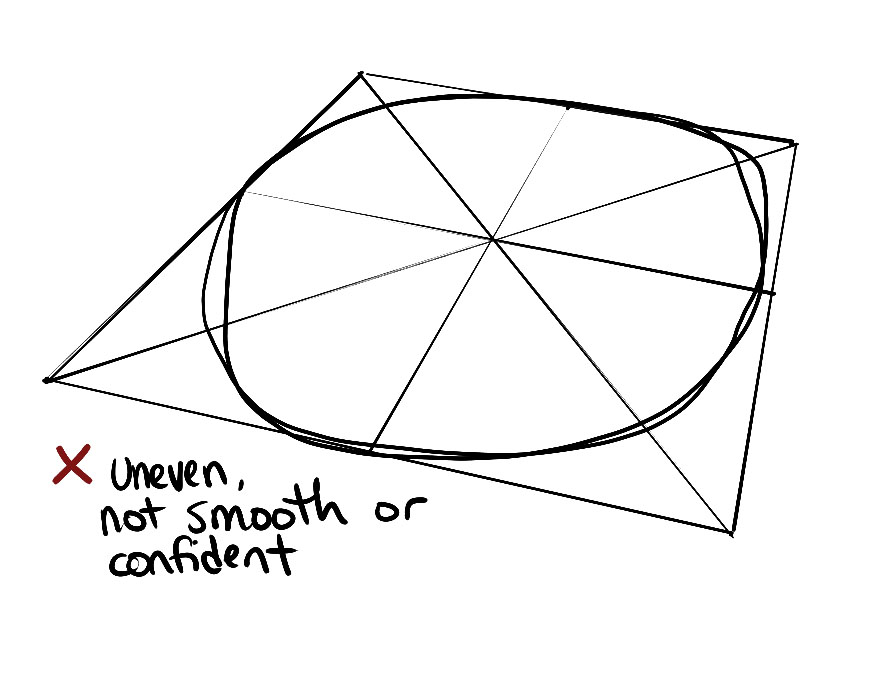 Uneven,
not smooth or
confident